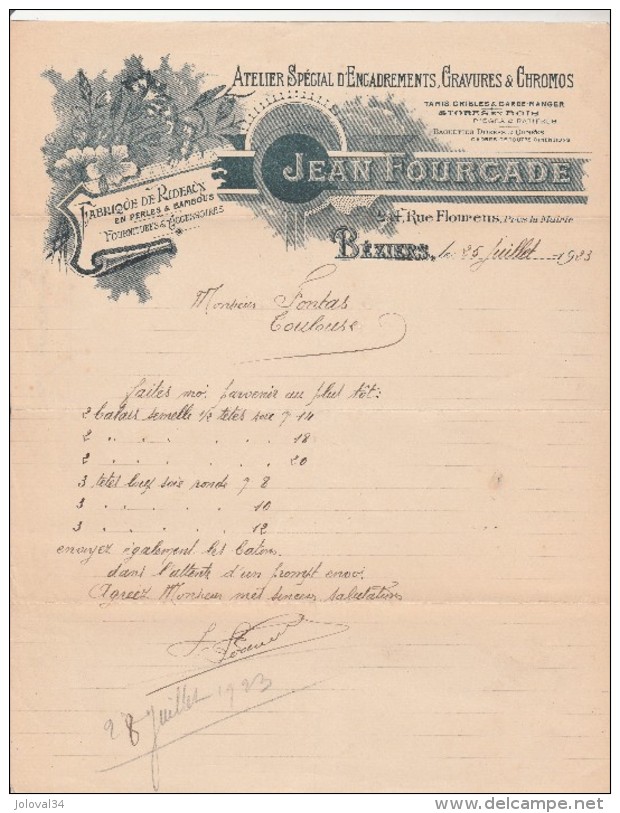 ATELIER SPÉCIAL D'ENCADREMENTS, GRAVURES & CHROMOS
TAMIS CRIBLES & GARDE-MANGER
STORES EN BOIS
BAGUETTES DORÉES &
JEAN FOURCADE
FABRIQUE DE RIDEAUX
EN PERLES & BAMBOUS
FOURNITURES & ACCESSOIRES
Rue Flourens, Près la Mairie
BÉZIERS, le 25 Juillet 1923
Monsieur Fontas
Toulouse
faites moi parvenir au plus tôt:
2 balais semelle 1/2 têtes soie 7 14
2 " " " " " " 18
2 " " " " " " 20
3 têtes loup soie ronde 7 8
3 " " " " " 10
3 " " " " " 12
envoyez également les batons.
dans l'attente d'un prompt envoi.
Agreez Monsieur més sinceres salutations
28 Juillet 1923
joloval34
www.delcampe.net